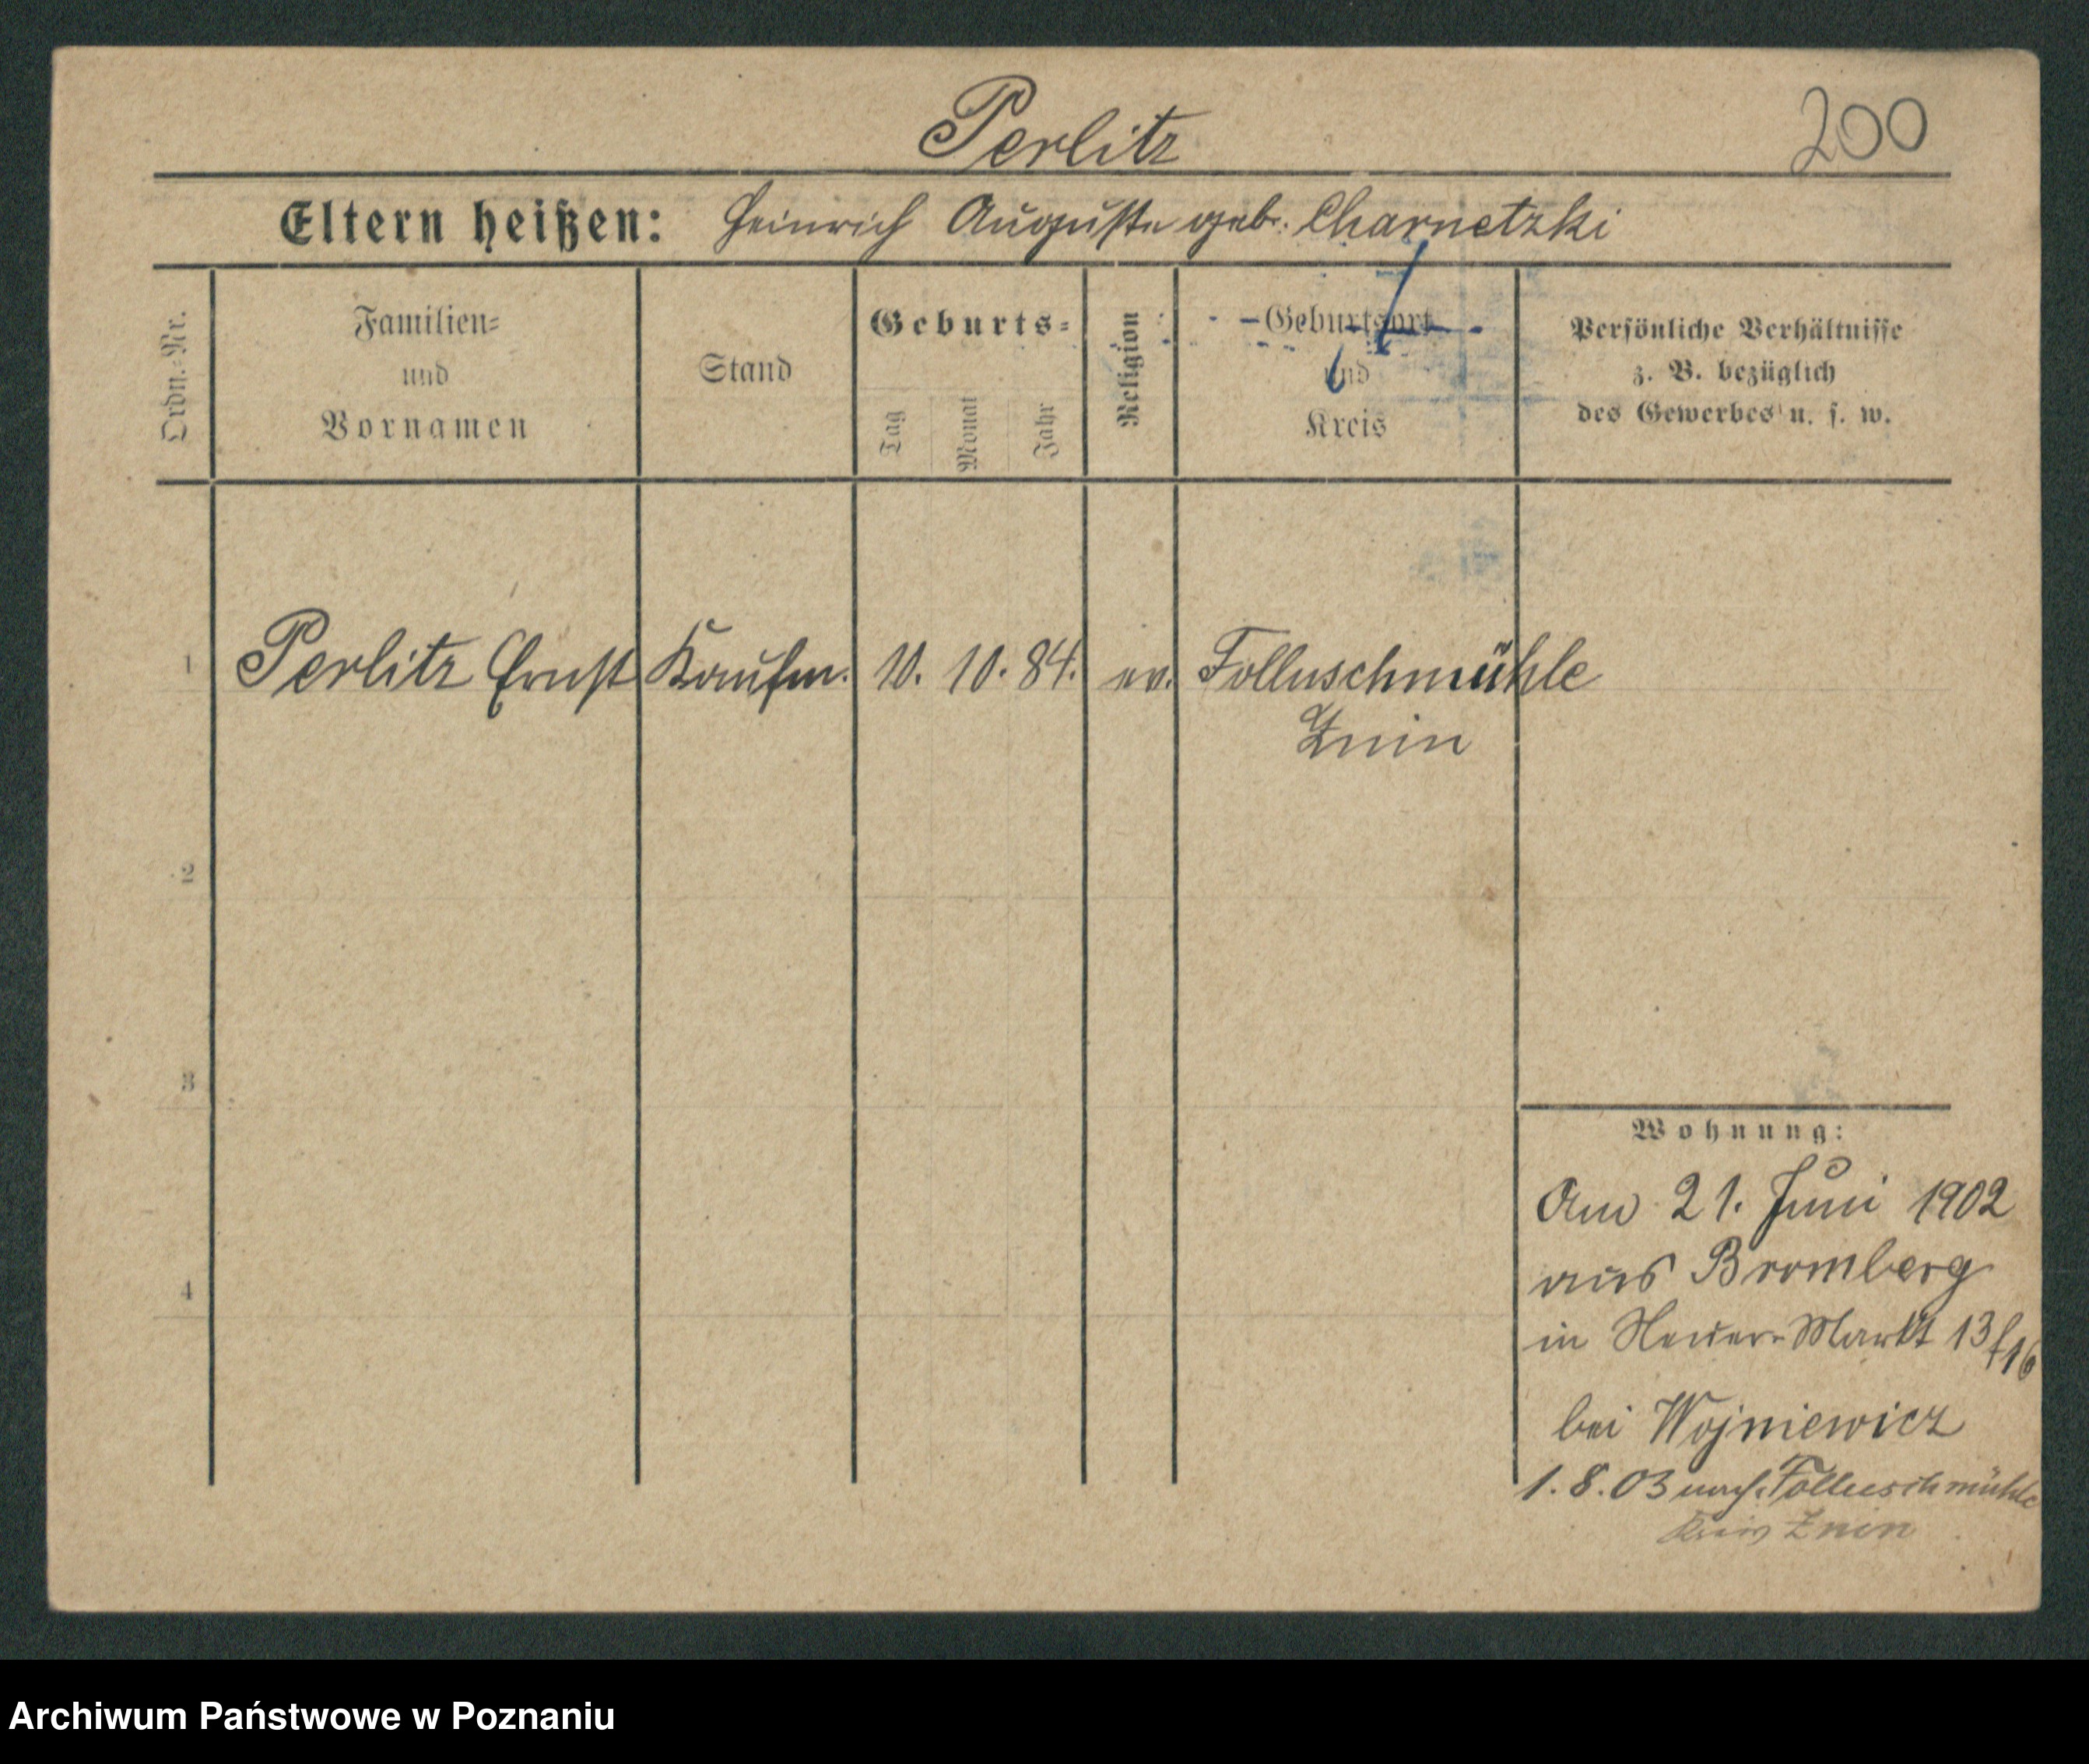 Perlitz
200
Eltern heißen: Heinrich Auguste geb. Charnetzki
Ordn.-Nr.
Familien-
und
Vornamen
Stand
Geburts-
Tag
Monat
Jahr
Religion
Geburtsort
und
Kreis
Persönliche Verhältnisse
z. B. bezüglich
des Gewerbes u. s. w.
1 Perlitz Ernst Kaufm. 10. 10. 84. ev. Folluschmühle
Znin
2
3
4
Wohnung:
Am 21. Juni 1902
aus Bromberg
in Neuer-Markt 13/16
bei Wojniewicz
1.8.03 nach Folluschmühle
Kreis Znin
Archiwum Państwowe w Poznaniu